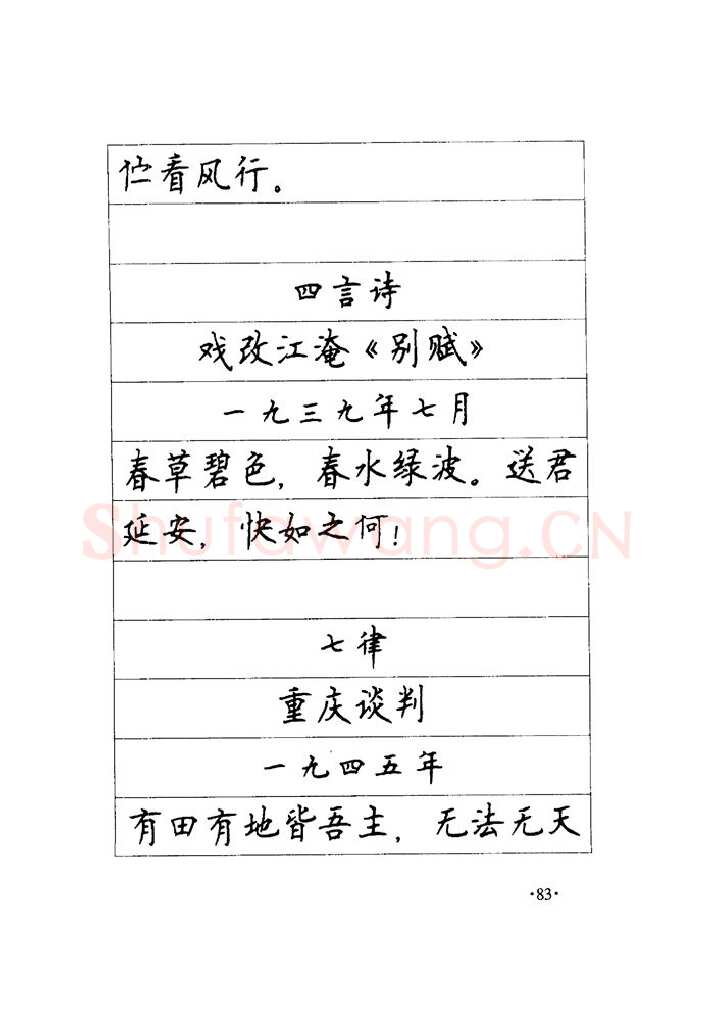 伫看风行。
四言诗
戏改江淹《别赋》
一九三九年七月
春草碧色，春水绿波。送君
延安，快如之何！
Shufawang.CN
七律
重庆谈判
一九四五年
有田有地皆吾主，无法无天
·83·